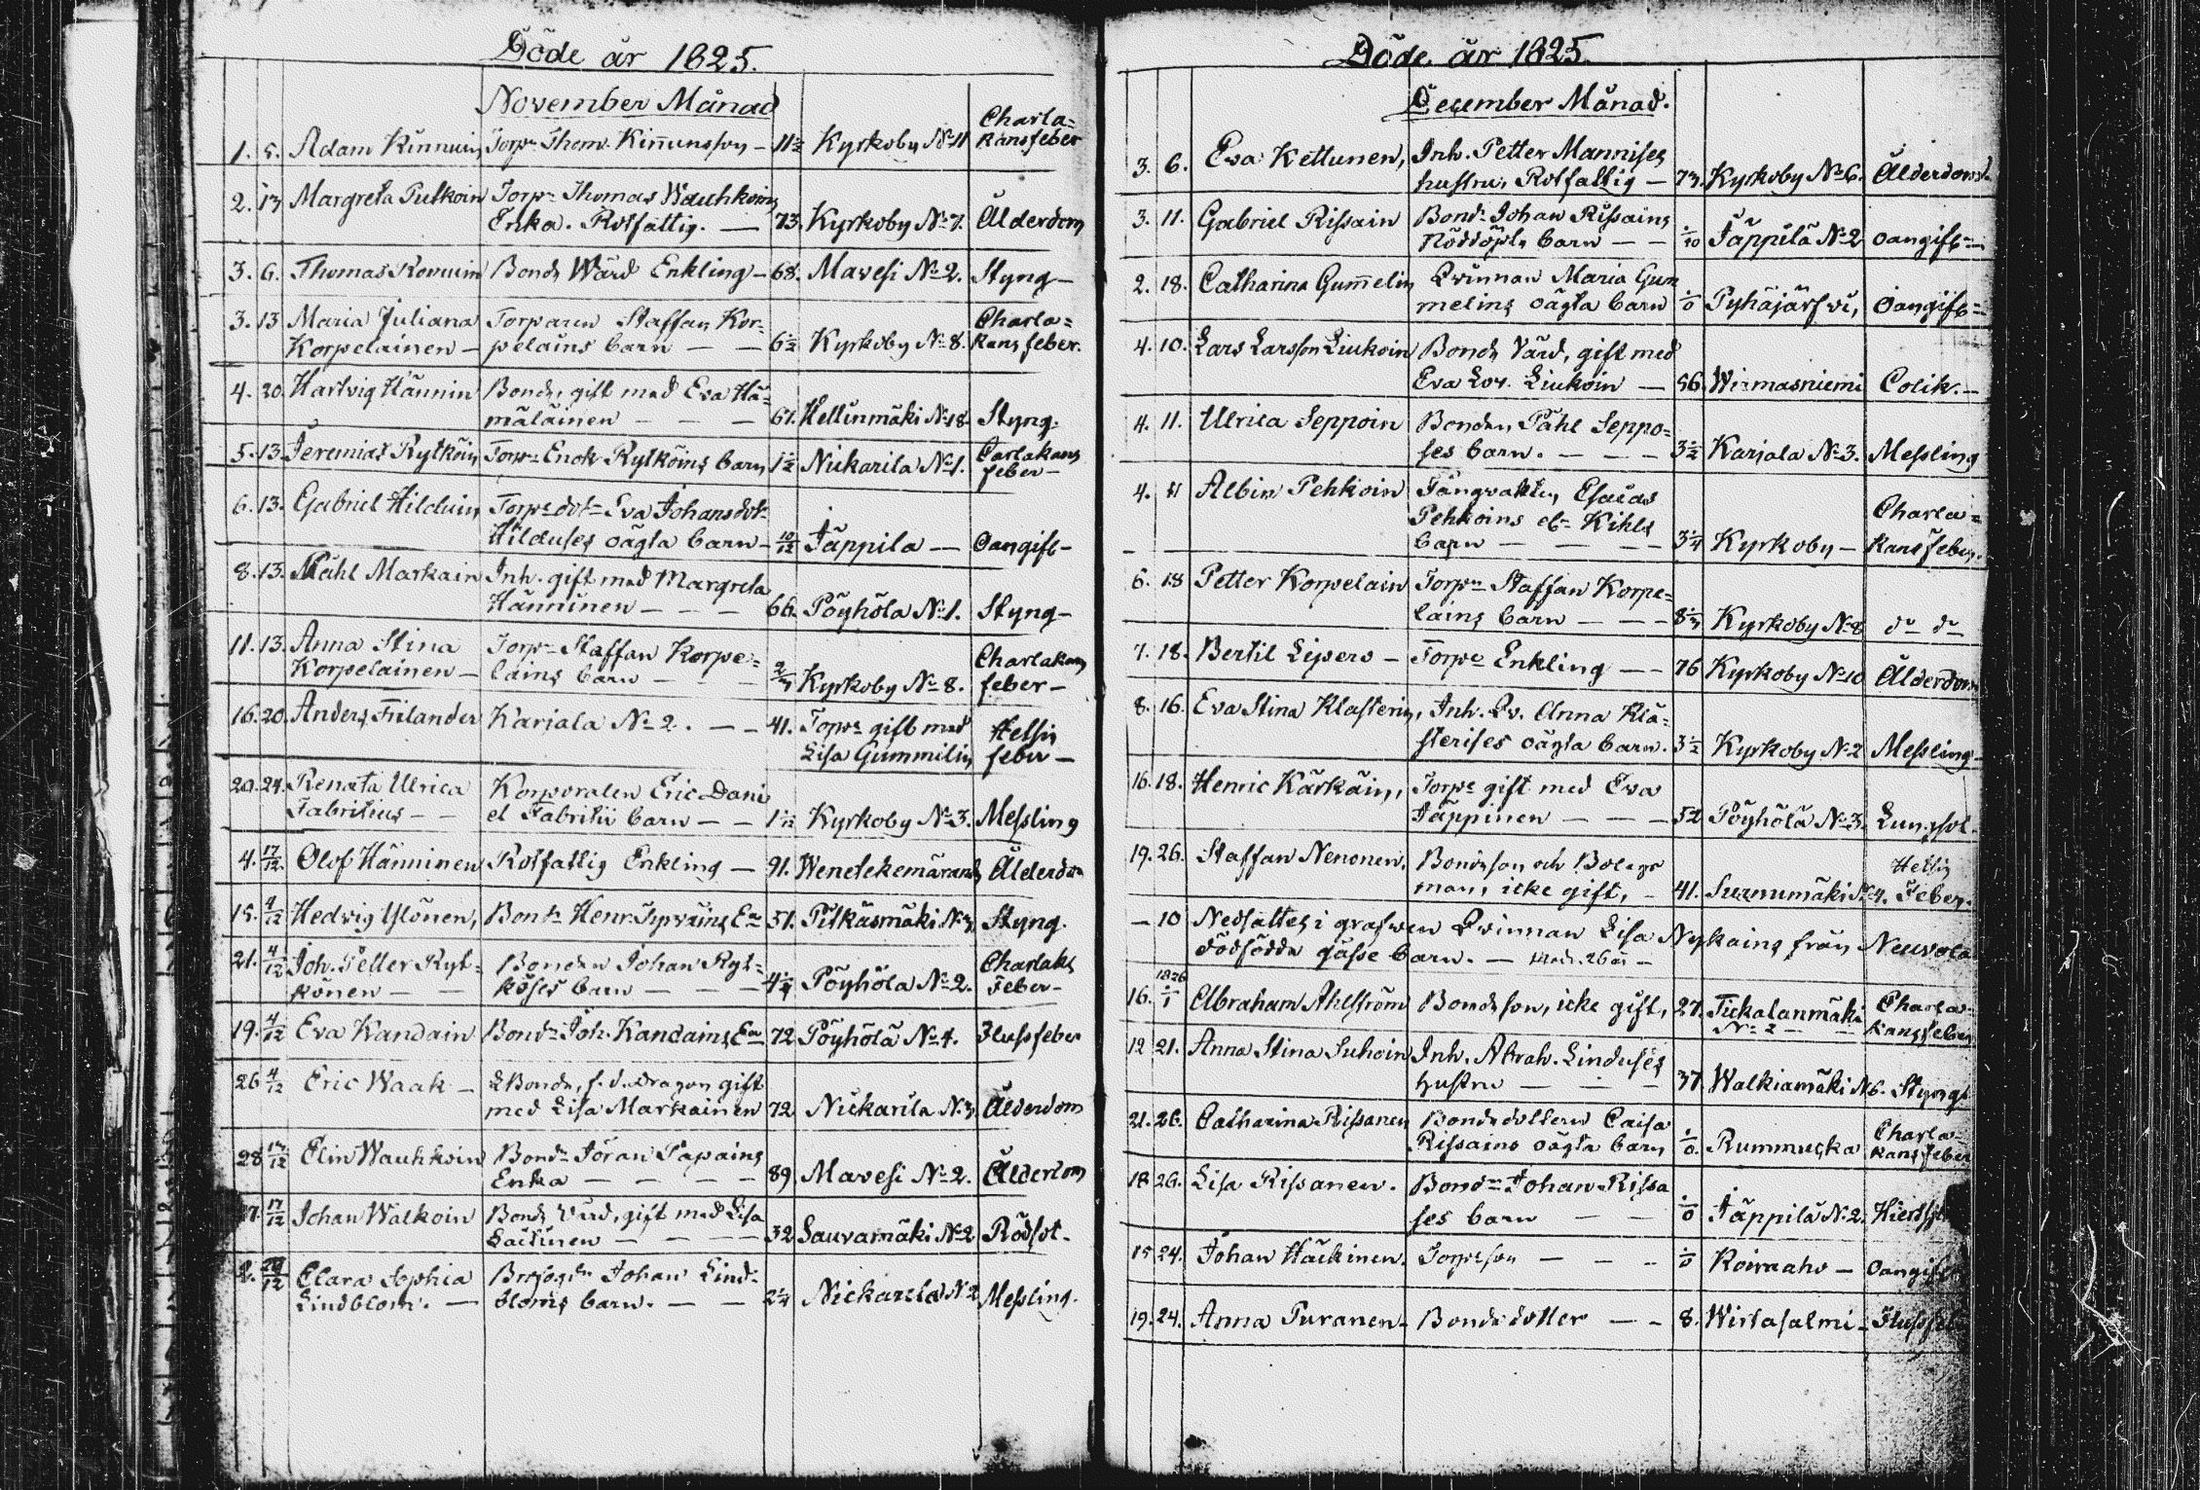 Döde år 1825.
November Månad
1. 5. Adam Kinnuin, Torp: Thom. Kiñunsson — 11½ Kyrkoby N:11 Charla=
kansfeber
2. 13 Margreta Putkoin Torp: Thomas Wauhkoins
Enka. Rotfattig. — 73. Kyrkoby N:7. Ålderdom
3. 6. Thomas Rovuin Bonde Wärd Enkling — 68. Mavesi N:2. Styng —
3. 13 Maria Juliana Torparen Staffan Kor= Charla=
Korpelainen — pelains barn — — 6½ Kyrkoby N:8. kans feber.
4. 20. Hartvig Hännin Bonde, gift med Eva Hä=
mäläinen — — — 61. Hellinmäki N:18 Styng.
5. 13. Jeremias Rytköin Torp: Enok Rytköins barn 1½ Nickarila N:1. Carlakans
feber —
6. 13. Gabriel Hilduin Torpe dot: Eva Johansdot:
Hilduses oägta barn — 10/12 Jäppila — Oangift —
8. 13. Påhl Markain Inh. gift med Margreta
Hänninen — — — 66. Pöyhölä N:1. Styng —
11. 13. Anna Stina Torp: Staffan Korpe= Charlakans
Korpelainen — lains barn — — Kyrkoby N:8. feber —
16. 20. Anders Frilander Karjala N:2. — — 41. Torp: gift med Hetsig
Lisa Gummelin feber —
20. 24. Renata Ulrica Korporalen Eric Dani
Fabritius — — el Fabritii barn — — Kyrkoby N:3. Messling
4. 17/12. Olof Hänninen Rotfattig Enkling — 91. Wenetekemäranda Ålderdom
15. 4/12 Hedvig Ylönen, Bonde Henr. Typpäins Ea 51. Pitkäsmäki N:3 Styng.
21. 4/12 Joh. Petter Ryt= Bonden Johan Ryt= Charlaks
könen — — köses barn — — — 4¼ Pöyhölä N:2. Feber —
19. 4/12 Eva Kandain Bond: Joh. Kandains Ea 72 Pöyhölä N:4. Flussfeber
26 4/12 Eric Waak — Bonde, f. d. Dragon gift
med Lisa Markainen 72 Nickarila N:3 Ålderdom
28 17/12 Elin Wauhkoin Bond: Jöran Papains
Enka — — — — 89. Mavesi N:2. Ålderdom
17/12 Johan Walkoin Bonde Värd, gift med Lisa
Laitinen — — — 32 Sauvamäki N:2 Rödsot —
Clara Sophia Johan Lind=
Lindblom. — bloms barn. — — 2¼ Nickarila N:2 Messling.
Döde år 1825.
December Månad.
3. 6. Eva Kettunen, Inh. Petter Mannises
hustru, Rotfattig — 73. Kyrkoby N:6. Ålderdom
3. 11. Gabriel Rissain Bond: Johan Rissains
nöddöpta barn — — Jäppilä N:2 oangift —
2. 18. Catharina Gum̄elin Qvinnan Maria Gum
melins oägta barn Pyhäjärfvi, oangift —
4. 10. Lars Larsson Liukoin Bonde Värd, gift med
Eva Lov. Liukoin — 56. Wirmasniemi Colik. —
4. 11. Ulrica Seppoin Bonden Påhl Seppo=
ses barn. — — — 3½ Karjala N:3. Messling
4. 11 Albin Pehkoin Fångvakten Esaias
Pehkoins el: Kihls Charla=
barn — — — 3¼ Kyrkoby — kansfeber.
6. 18 Petter Korpelain Torp: Staffan Korpe=
lains barn — — — Kyrkoby N:8 do do
7. 18. Bertil Lipers — Torpe Enkling — — 76 Kyrkoby N:10 Ålderdom
8. 16. Eva Stina Klasterin, Inh. Qv. Anna Kla=
sterises oägta barn. 3½ Kyrkoby N:2 Messling —
16. 18. Henric Kärkäin, Torpe gift med Eva
Jäppinen — — — 52 Pöyhölä N:3. Lungsot.
19. 26. Staffan Nenonen, Bondeson och Bolags Hetsig
man, icke gift, — 41. Surnumäki N:4. Feber.
— 10 Nedsattes i grafven Qvinnan Lisa Nykains från Neuvola
dödfödde gåsse barn. — Mod. 26 år —
1826
16. 1/1 Abraham Ahlström Bondeson, icke gift, 27. Tickalanmäki Charla=
N:2 — — kansfeber
12 21. Anna Stina Suhoin Inh. Abrah. Linduses
hustru — — — 37. Walkiamäki N:6. Styng
21. 26. Catharina Rissanen Bondedottern Caisa Charla=
Rissains oägta barn Rummucka kansfeber
18 26. Lisa Rissanen. Bond: Johan Rissa
ses barn — — Jäppilä N:2.
15 24. Johan Häckinen. Torpeson — — — Koivaaho — oangift
19. 24. Anna Puranen — Bondedotter — — 8. Wirtasalmi —